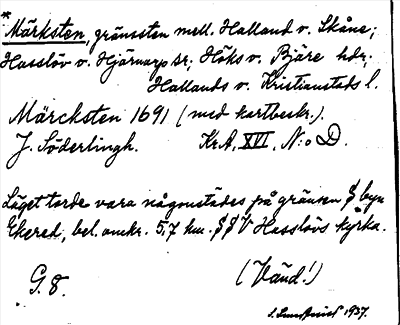 * Märksten, gränssten mell. Halland v. Skåne;
Hasslöv v. Hjärnarp sr; Höks v. Bjäre hdr;
Hallands v. Kristianstads l.
Märcksten 1691 (med kartbeskr.).
J. Söderlingh. Kr.A, XVI, N:o D.
Läget torde vara någonstädes på gränsen S byn
Ekered, bel. omkr. 5,7 km. SSV Hasslövs kyrka.
G. 8. (Vänd!)
1937.